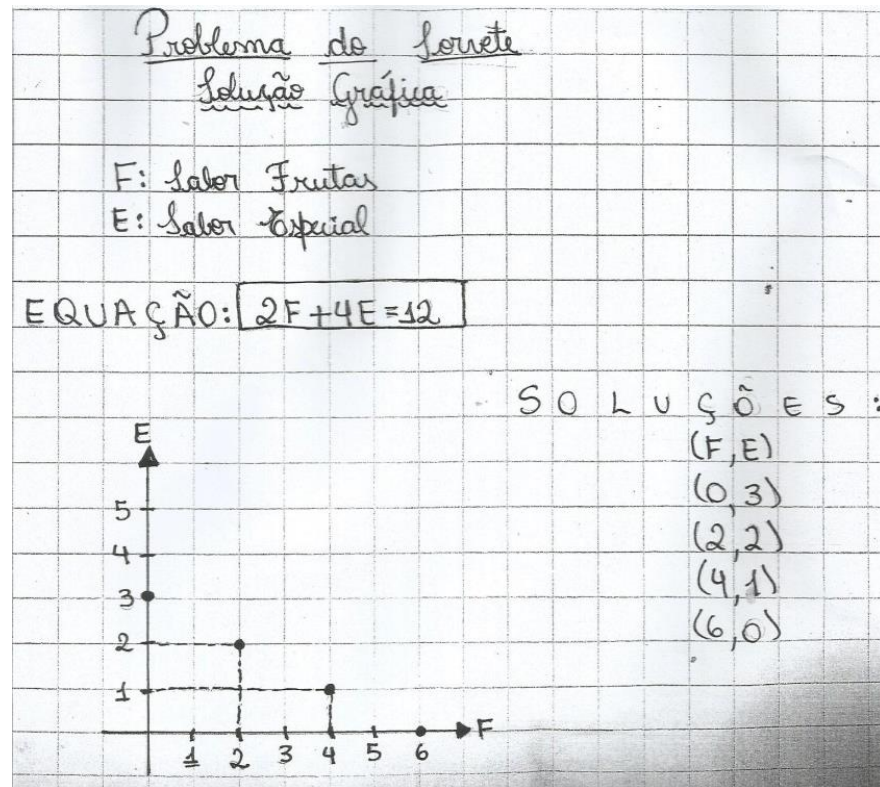 Problema do Sorvete
Solução Gráfica
F: Sabor Frutas
E: Sabor Especial
EQUAÇÃO: 2F+4E=12
SOLUÇÕES:
(F,E)
(0,3)
(2,2)
(4,1)
(6,0)
E
5
4
3
2
1
1 2 3 4 5 6 F